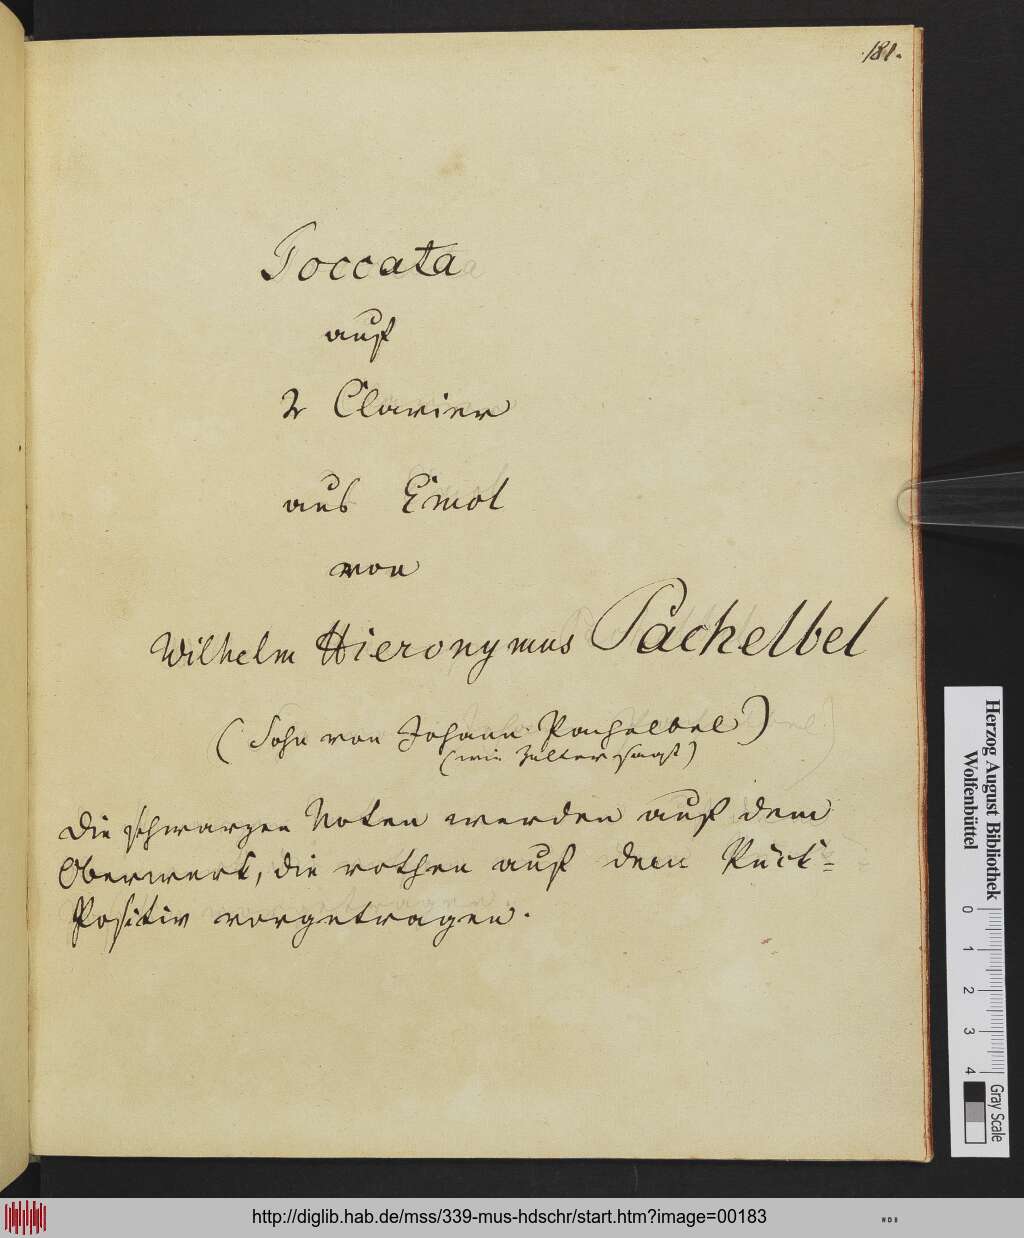 181.
Toccata
auf
2 Clavier
aus Emol
von
Wilhelm Hieronymus Pachelbel
(Sohn von Johann Pachelbel)
(wie Zelter sagt)
Die schwarzen Noten werden auf dem
Oberwerk, die rothen auf dem Rück=
Positiv vorgetragen.
Herzog August Bibliothek
Wolfenbüttel
0 1 2 3 4
Gray Scale
http://diglib.hab.de/mss/339-mus-hdschr/start.htm?image=00183